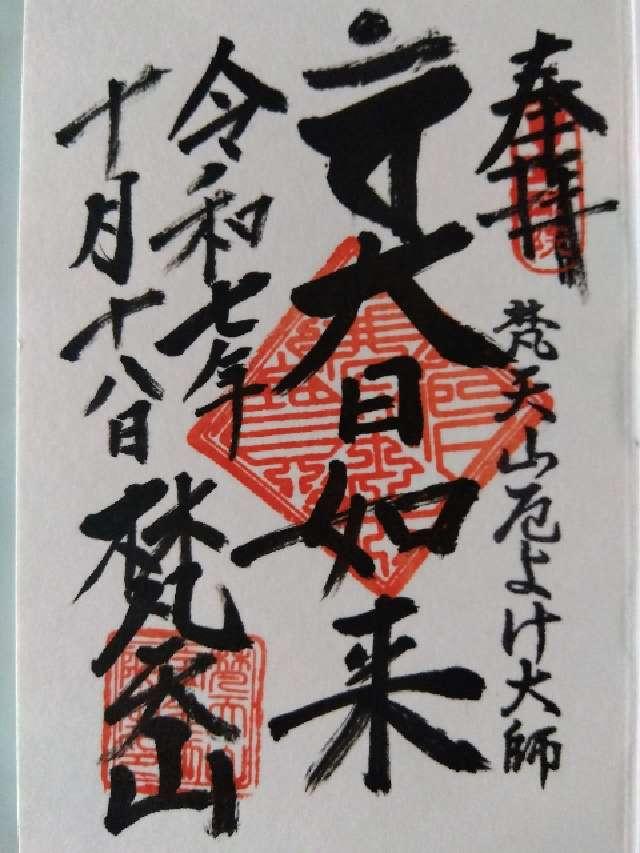 奉拝
梵天山厄よけ大師
大日如来
令和七年
十月十八日
梵天山